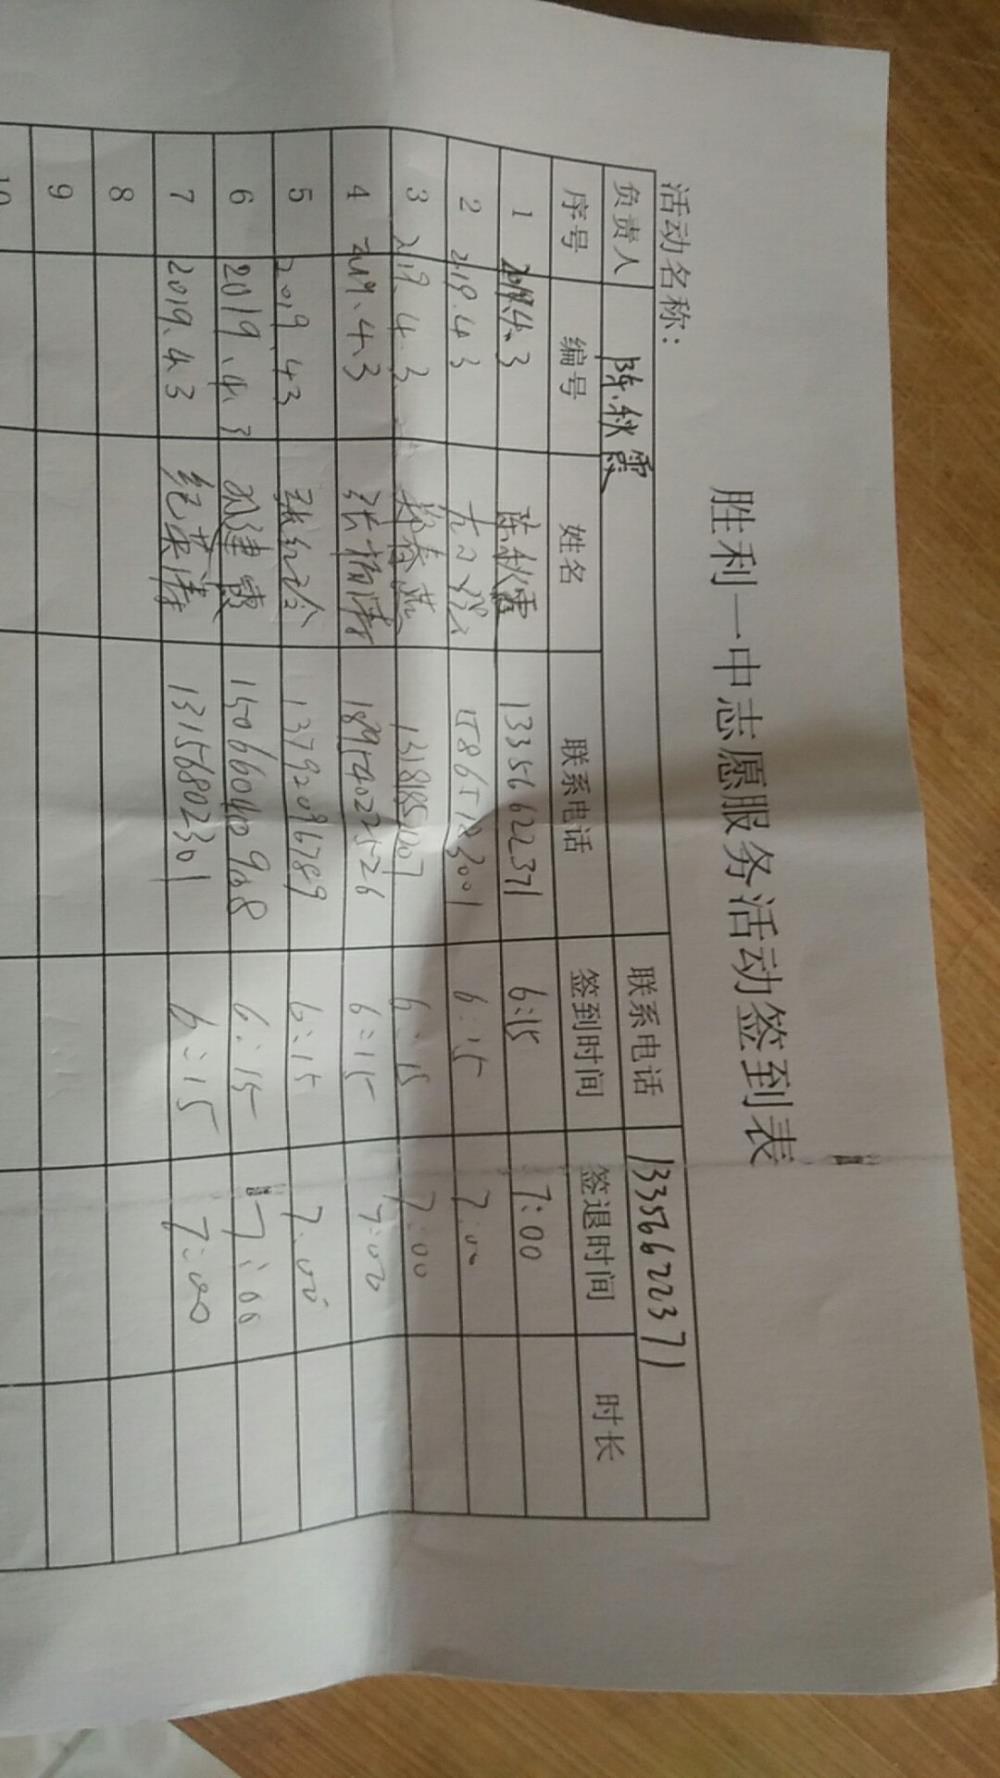 胜利一中志愿服务活动签到表
活动名称:
负责人 陈秋霞 联系电话 13356622371
序号 编号 姓名 联系电话 签到时间 签退时间 时长
1 2019.4.3 陈秋霞 13356622371 6:15 7:00
2 219.4.3 6:15 7:00
3 219.4.3 郑春燕 6:15 7:00
4 2019.4.3 18954022526 6:15 7:00
5 2019.4.3 张红玲 13792096789 6:15 7:00
6 2019.4.3 6:15 7:00
7 2019.4.3 纪英涛 13156802301 6:15 7:00
8
9
10